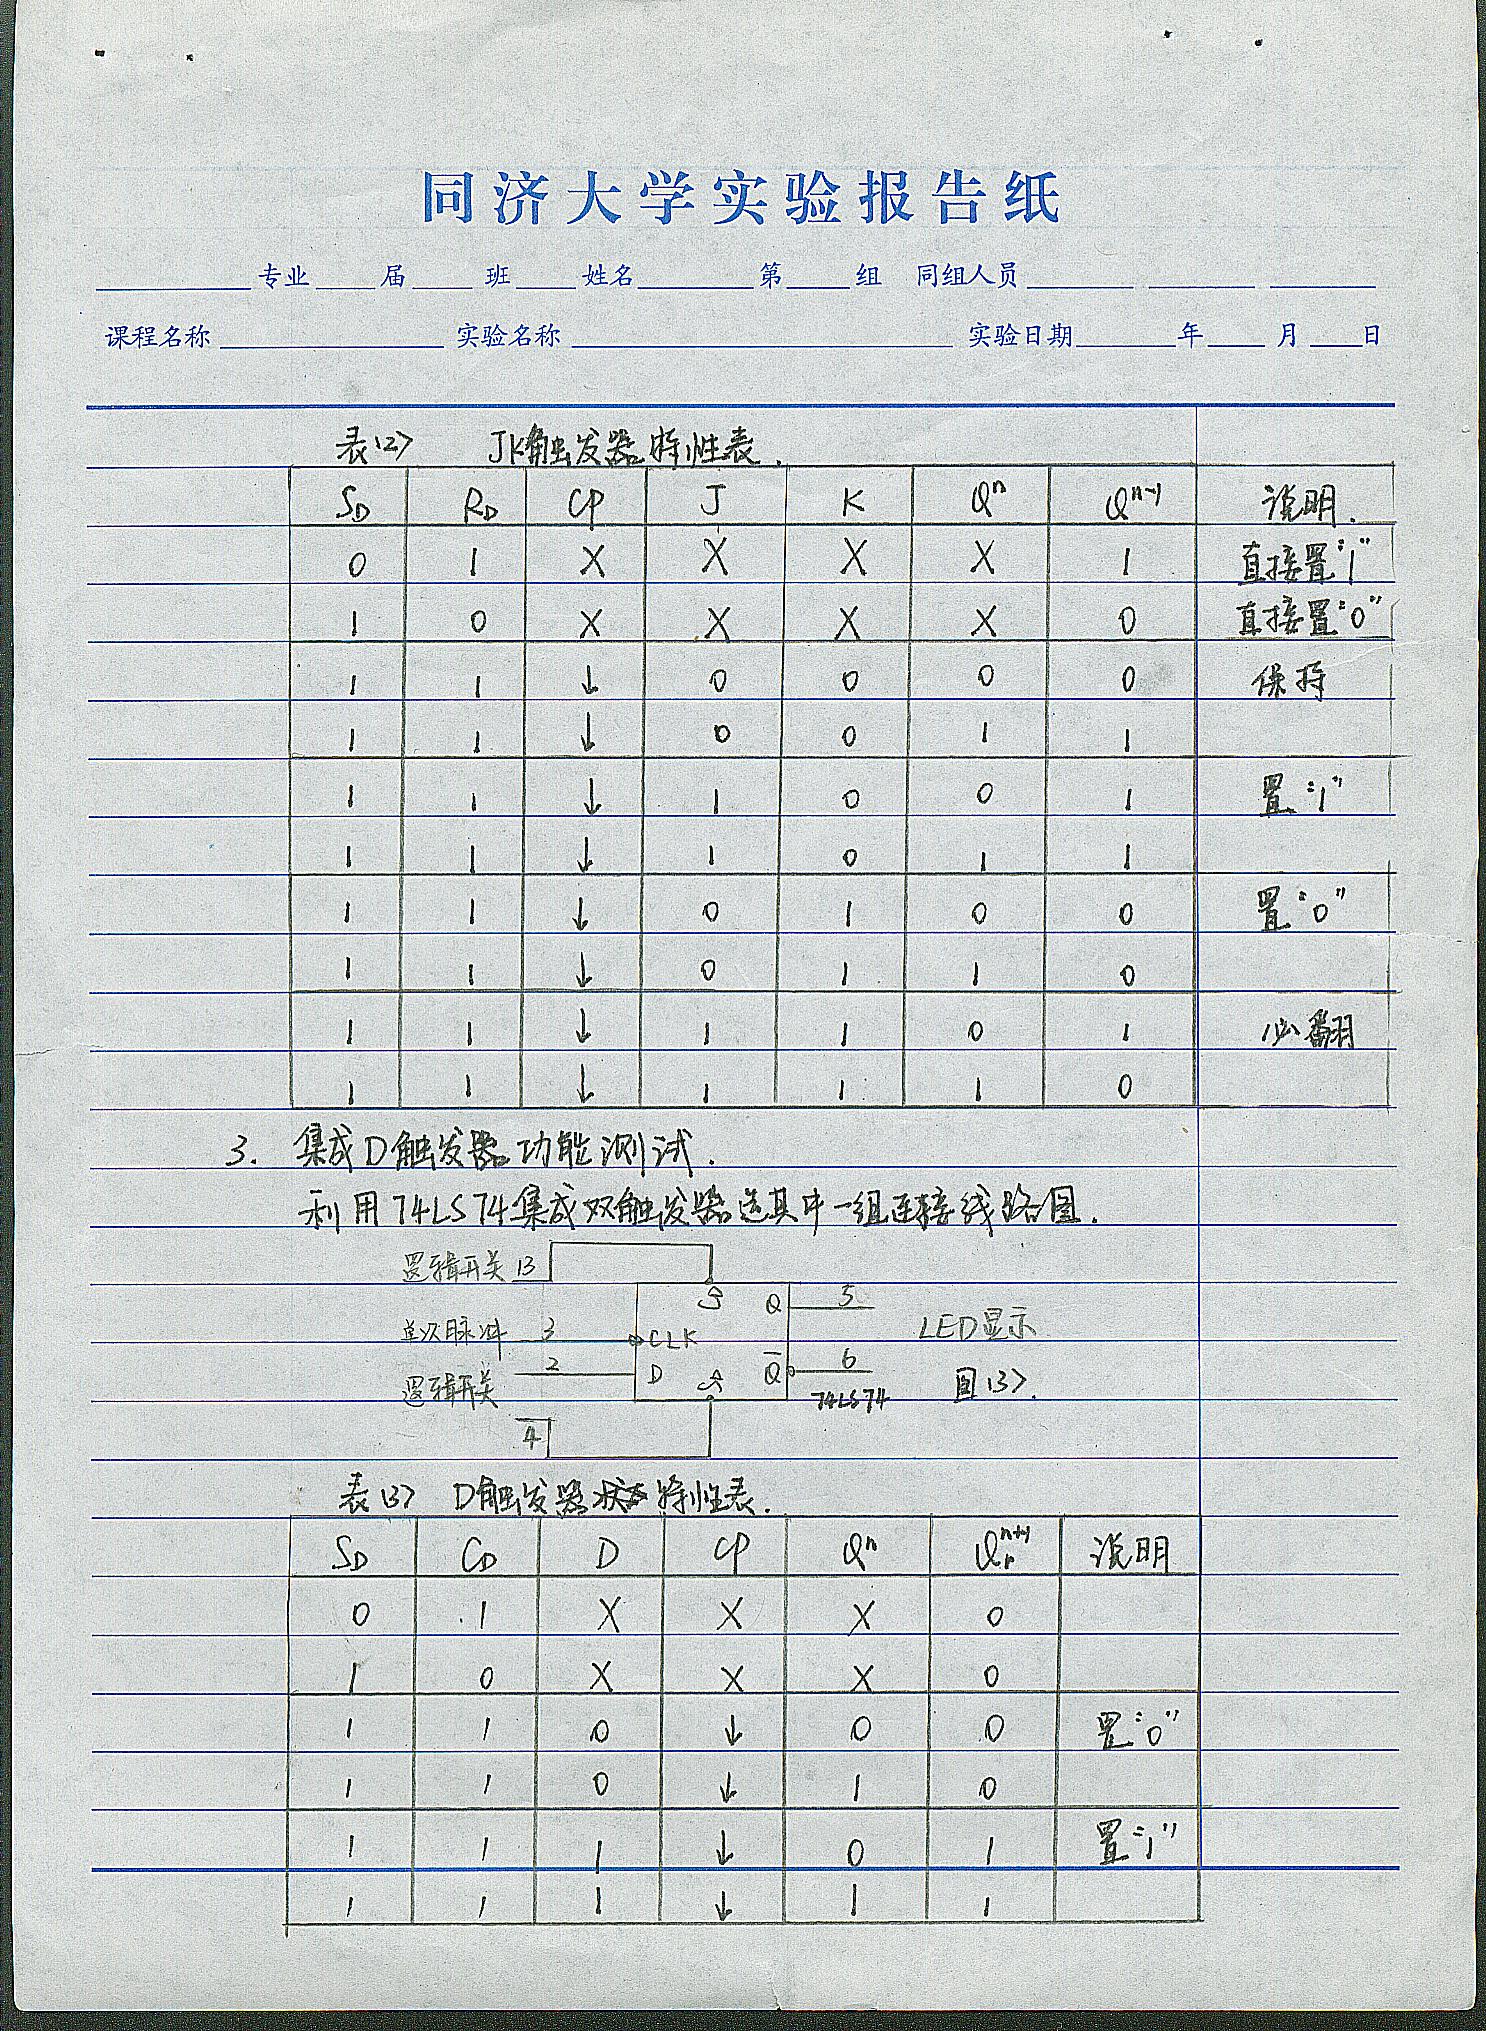 同济大学实验报告纸
专业 届 班 姓名 第 组 同组人员
课程名称 实验名称 实验日期 年 月 日
表(2) JK触发器特性表.
SD RD CP J K Qⁿ Qⁿ⁻¹ 说明.
0 1 X X X X 1 直接置"1"
1 0 X X X X 0 直接置"0"
1 1 ↓ 0 0 0 0 保持
1 1 ↓ 0 0 1 1
1 1 ↓ 1 0 0 1 置"1"
1 1 ↓ 1 0 1 1
1 1 ↓ 0 1 0 0 置"0"
1 1 ↓ 0 1 1 0
1 1 ↓ 1 1 0 1 必翻
1 1 ↓ 1 1 1 0
3. 集成D触发器功能测试.
利用74LS74集成双触发器选其中一组连接线路图.
逻辑开关 13
Q 5
单次脉冲 3 CLK LED显示
逻辑开关 2 D Q̅ 6 图(3).
74LS74
4
表(3) D触发器状态特性表.
SD CD D CP Qⁿ Qⁿ⁺¹ 说明
0 1 X X X 0
1 0 X X X 0
1 1 0 ↓ 0 0 置"0"
1 1 0 ↓ 1 0
1 1 1 ↓ 0 1 置"1"
1 1 1 ↓ 1 1